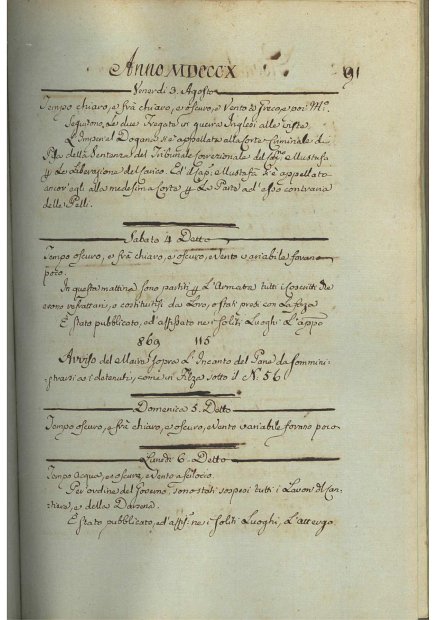 Anno MDCCCX 91
Venerdi 3. Agosto
Tempo chiaro, e frà chiaro, e oscuro, e Vento da Greco, e poi M.º
Seguono Le due Fregate in guerra Inglesi alle viste
L'Imperial Dogana si è appellata alla Corte Criminale di
Pisa della Sentenza del Tribunale Correzionale del Cap.no Mustafà
p La Liberazione del Carico. Ed il Cap. Mustafà si è appellato
ancor'egli alla medesima Corte p La Parte ad esso contraria
delle Pelli.
Sabato 4 Detto
Tempo oscuro, e frà chiaro, e oscuro, e Vento variabile forano
poco.
In questa mattina sono partiti p L'Armata tutti i Coscritti che
erono refrattari, o costituitisi da Loro, o stati presi con La forza
È stato pubblicato, ed affissato ne i soliti Luoghi L'appo
869 115
Avviso del Maire sopra L'Incanto del Pane da sommini-
strarsi ai detenuti, come in Filza sotto il N. 56
Domenica 5. Detto
Tempo oscuro, e frà chiaro, e oscuro, e Vento variabile forano poco
Lunedi 6. Detto
Tempo Acqua, e oscuro, e Vento a Scilocco.
Per ordine del Governo, sono stati sospesi tutti i Lavori del Can-
tiere, e della Darsena.
È stato pubblicato, ed aff. ne i soliti Luoghi, L'attergo